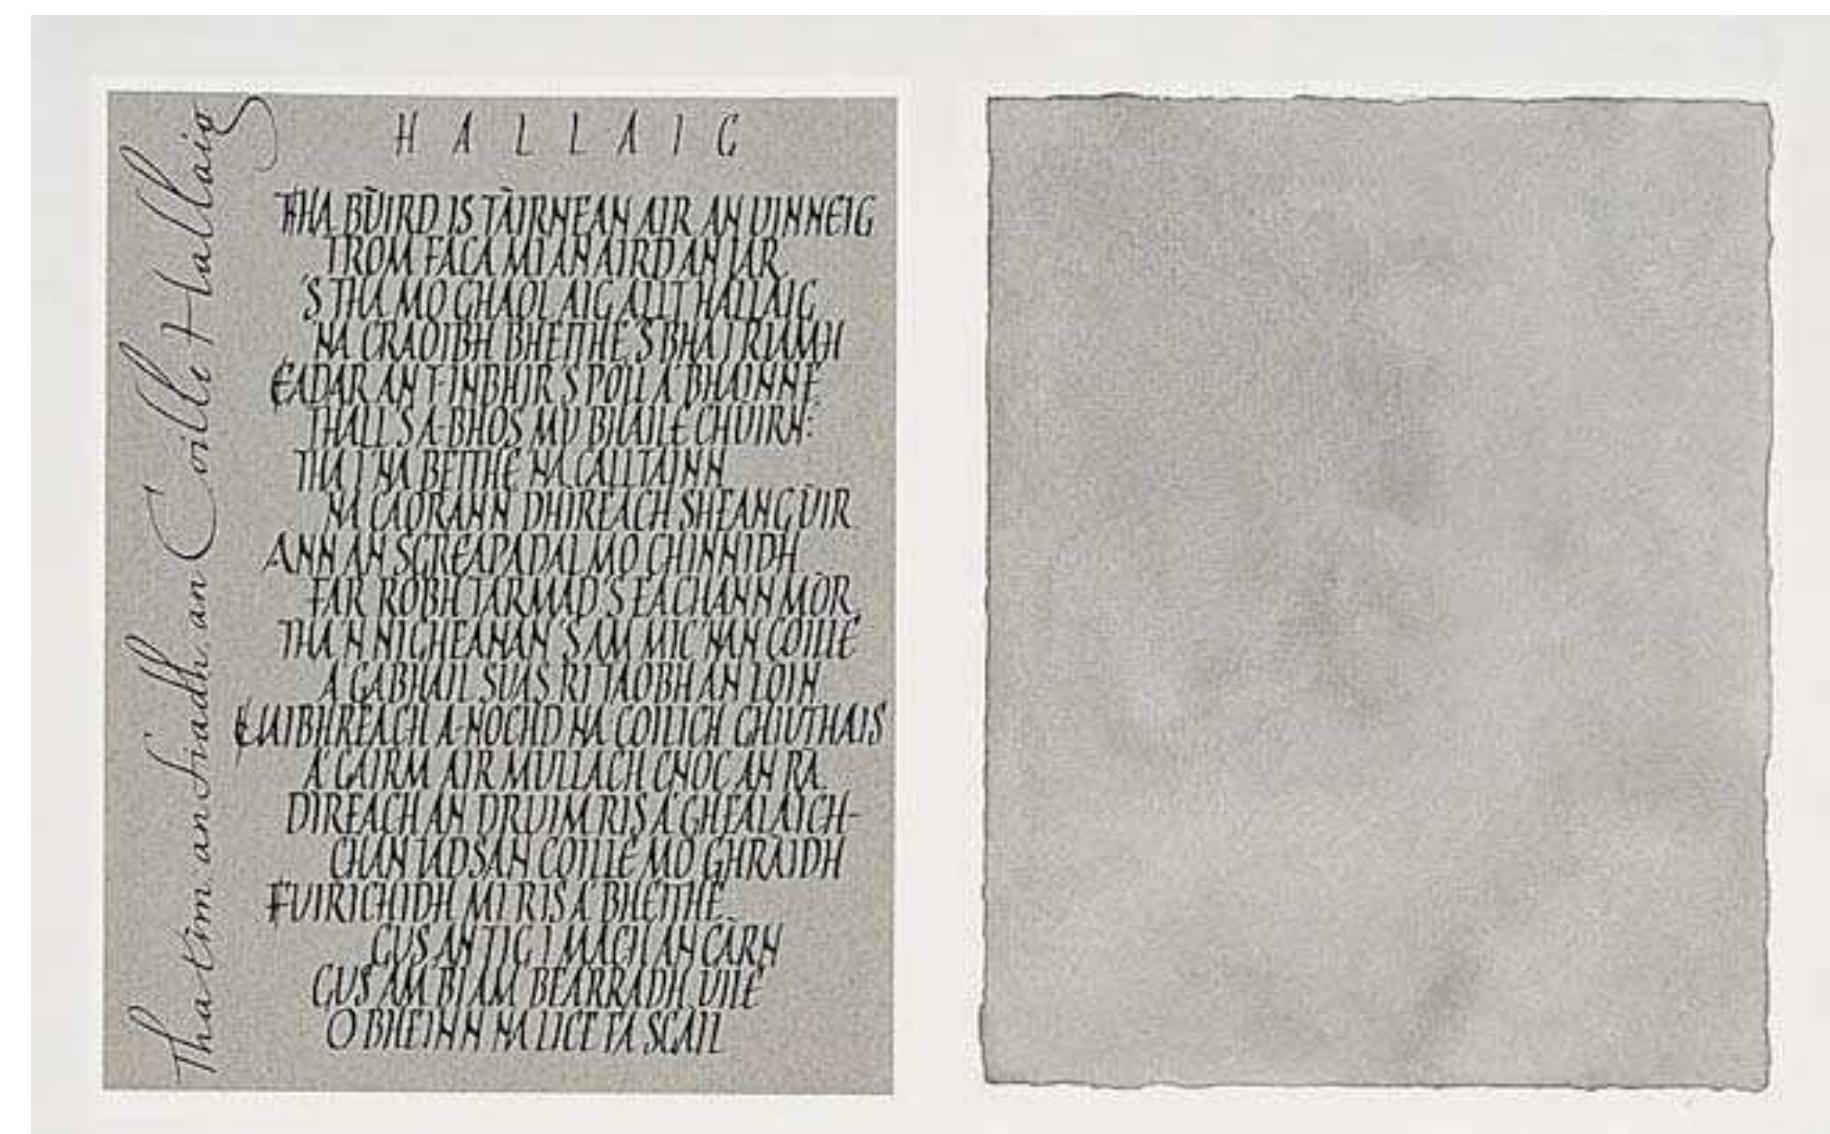 Tha tìm, am fiadh, an Coille Hallaig
HALLAIG
THA BÙIRD IS TÀIRNEAN AIR AN UINNEIG
TROM FACA MI AN ÀIRD AN IAR
'S THA MO GHAOL AIG ALLT HALLAIG
NA CRAOIBH BHEITHE, 'S BHA I RIAMH
EADAR AN T-INBHIR 'S POLL A' BHAINNE,
THALL 'S A-BHOS MU BHAILE CHÙIRN:
THA I NA BEITHE, NA CALLTAINN
NA CAORANN DHÌREACH SHEANG ÙIR.
ANN AN SGREAPADAL MO CHINNIDH,
FAR ROBH TARMAD 'S EACHANN MÒR,
THA 'N NIGHEANAN 'S AM MIC 'NAN COILLE
A' GABHAIL SUAS RI TAOBH AN LÒIN
UAIBHREACH A-NOCHD NA COILICH GHIUTHAIS
A' GAIRM AIR MULLACH CNOC AN RÀ
DÌREACH AN DRUIM RIS A' GHEALAICH-
CHAN IADSAN COILLE MO GHRÀIDH
FUIRICHIDH MI RIS A' BHEITHE
GUS AN TIG I MACH AN CÀRN
GUS AM BI AM BEARRADH UILE
O BHEINN NA LICE FA SGÀIL